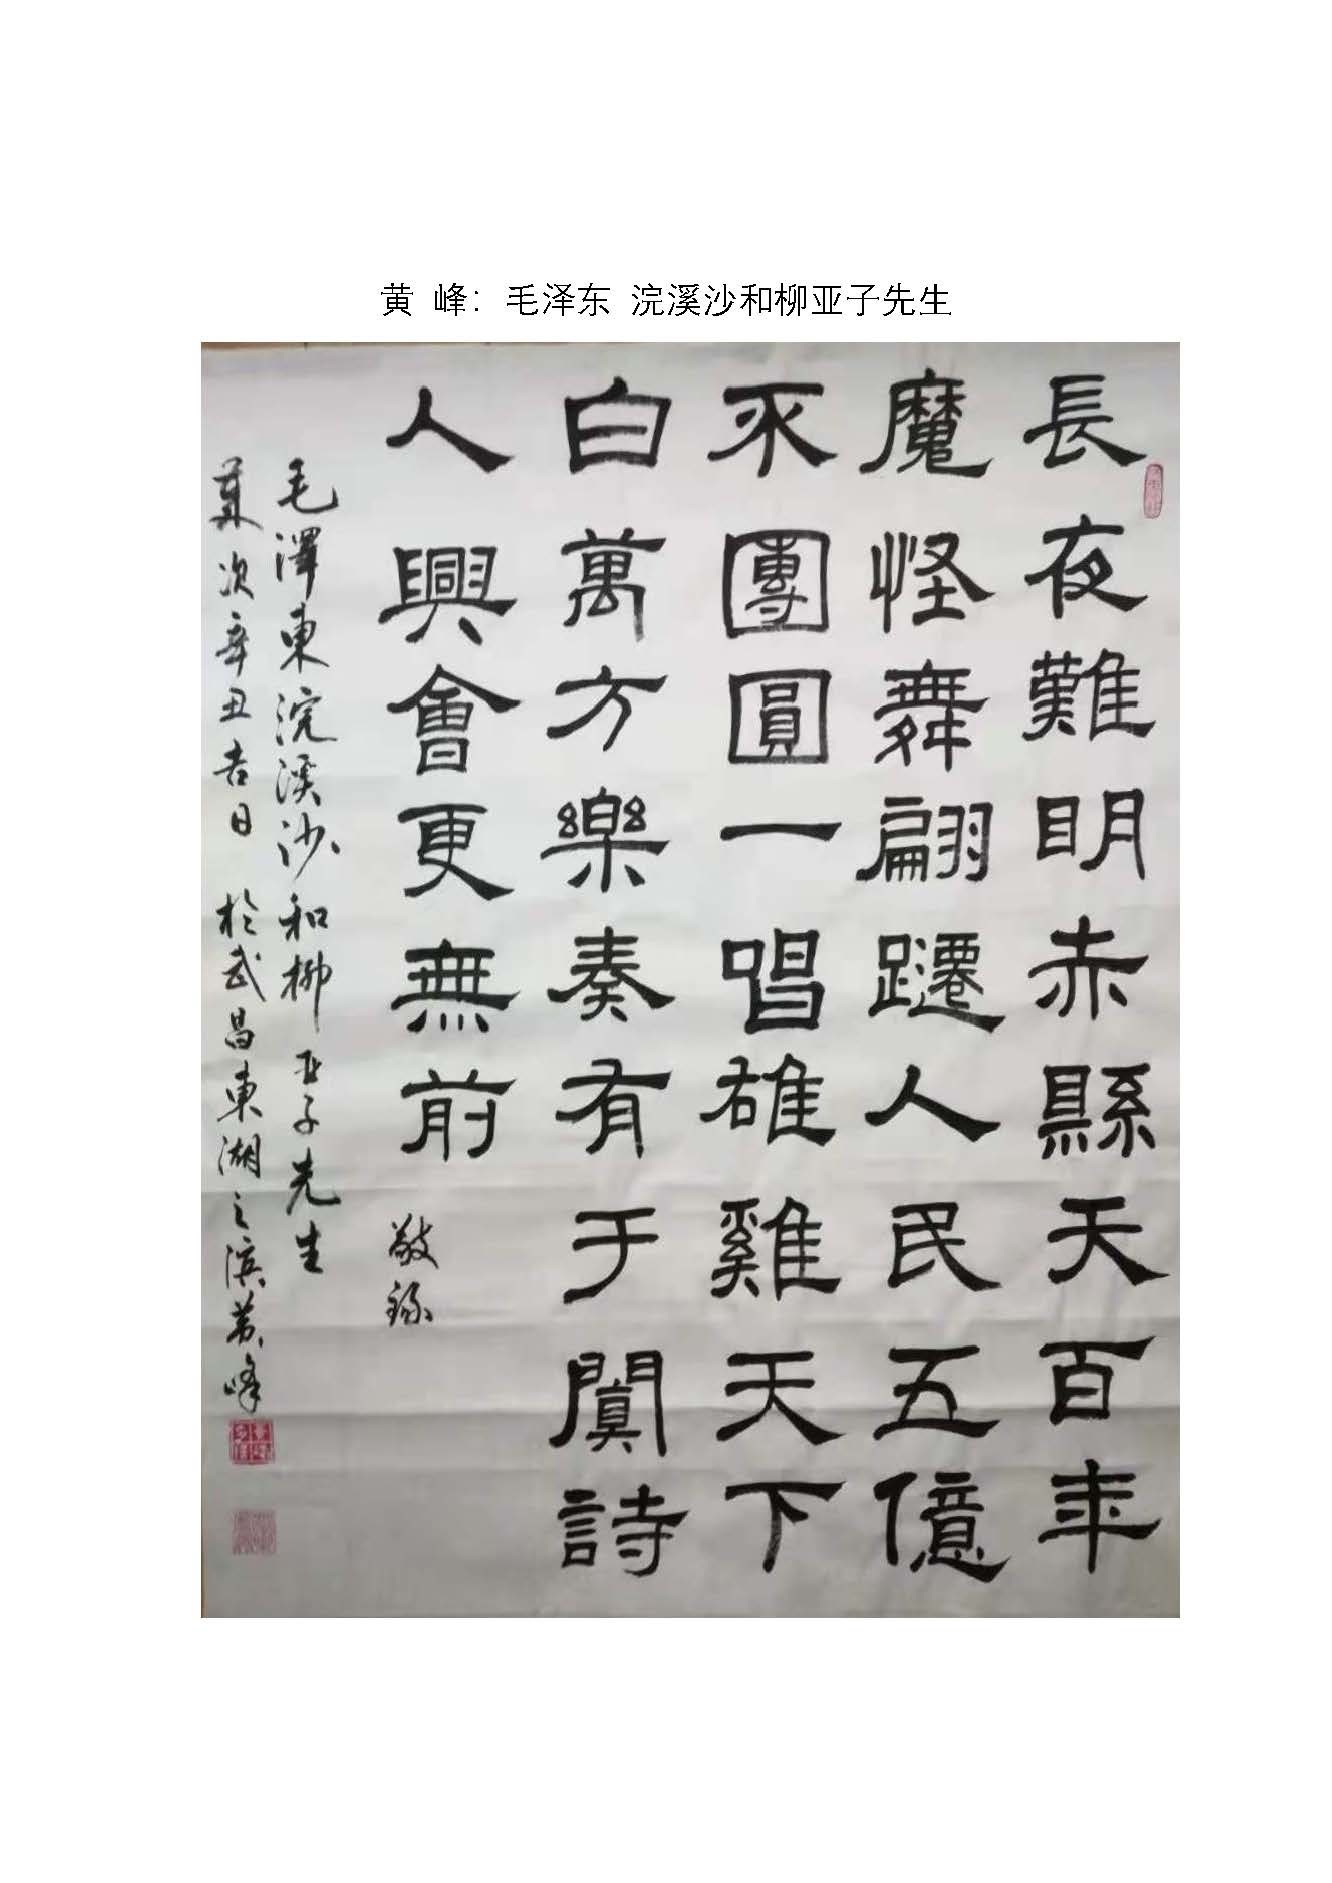 黄 峰: 毛泽东 浣溪沙和柳亚子先生
長夜難明赤縣天百年
魔怪舞翩躚人民五億
不團圓一唱雄雞天下
白萬方樂奏有于闐詩
人興會更無前 敬錄
毛澤東浣溪沙和柳亚子先生
歲次辛丑吉日 於武昌東湖之滨黄峰